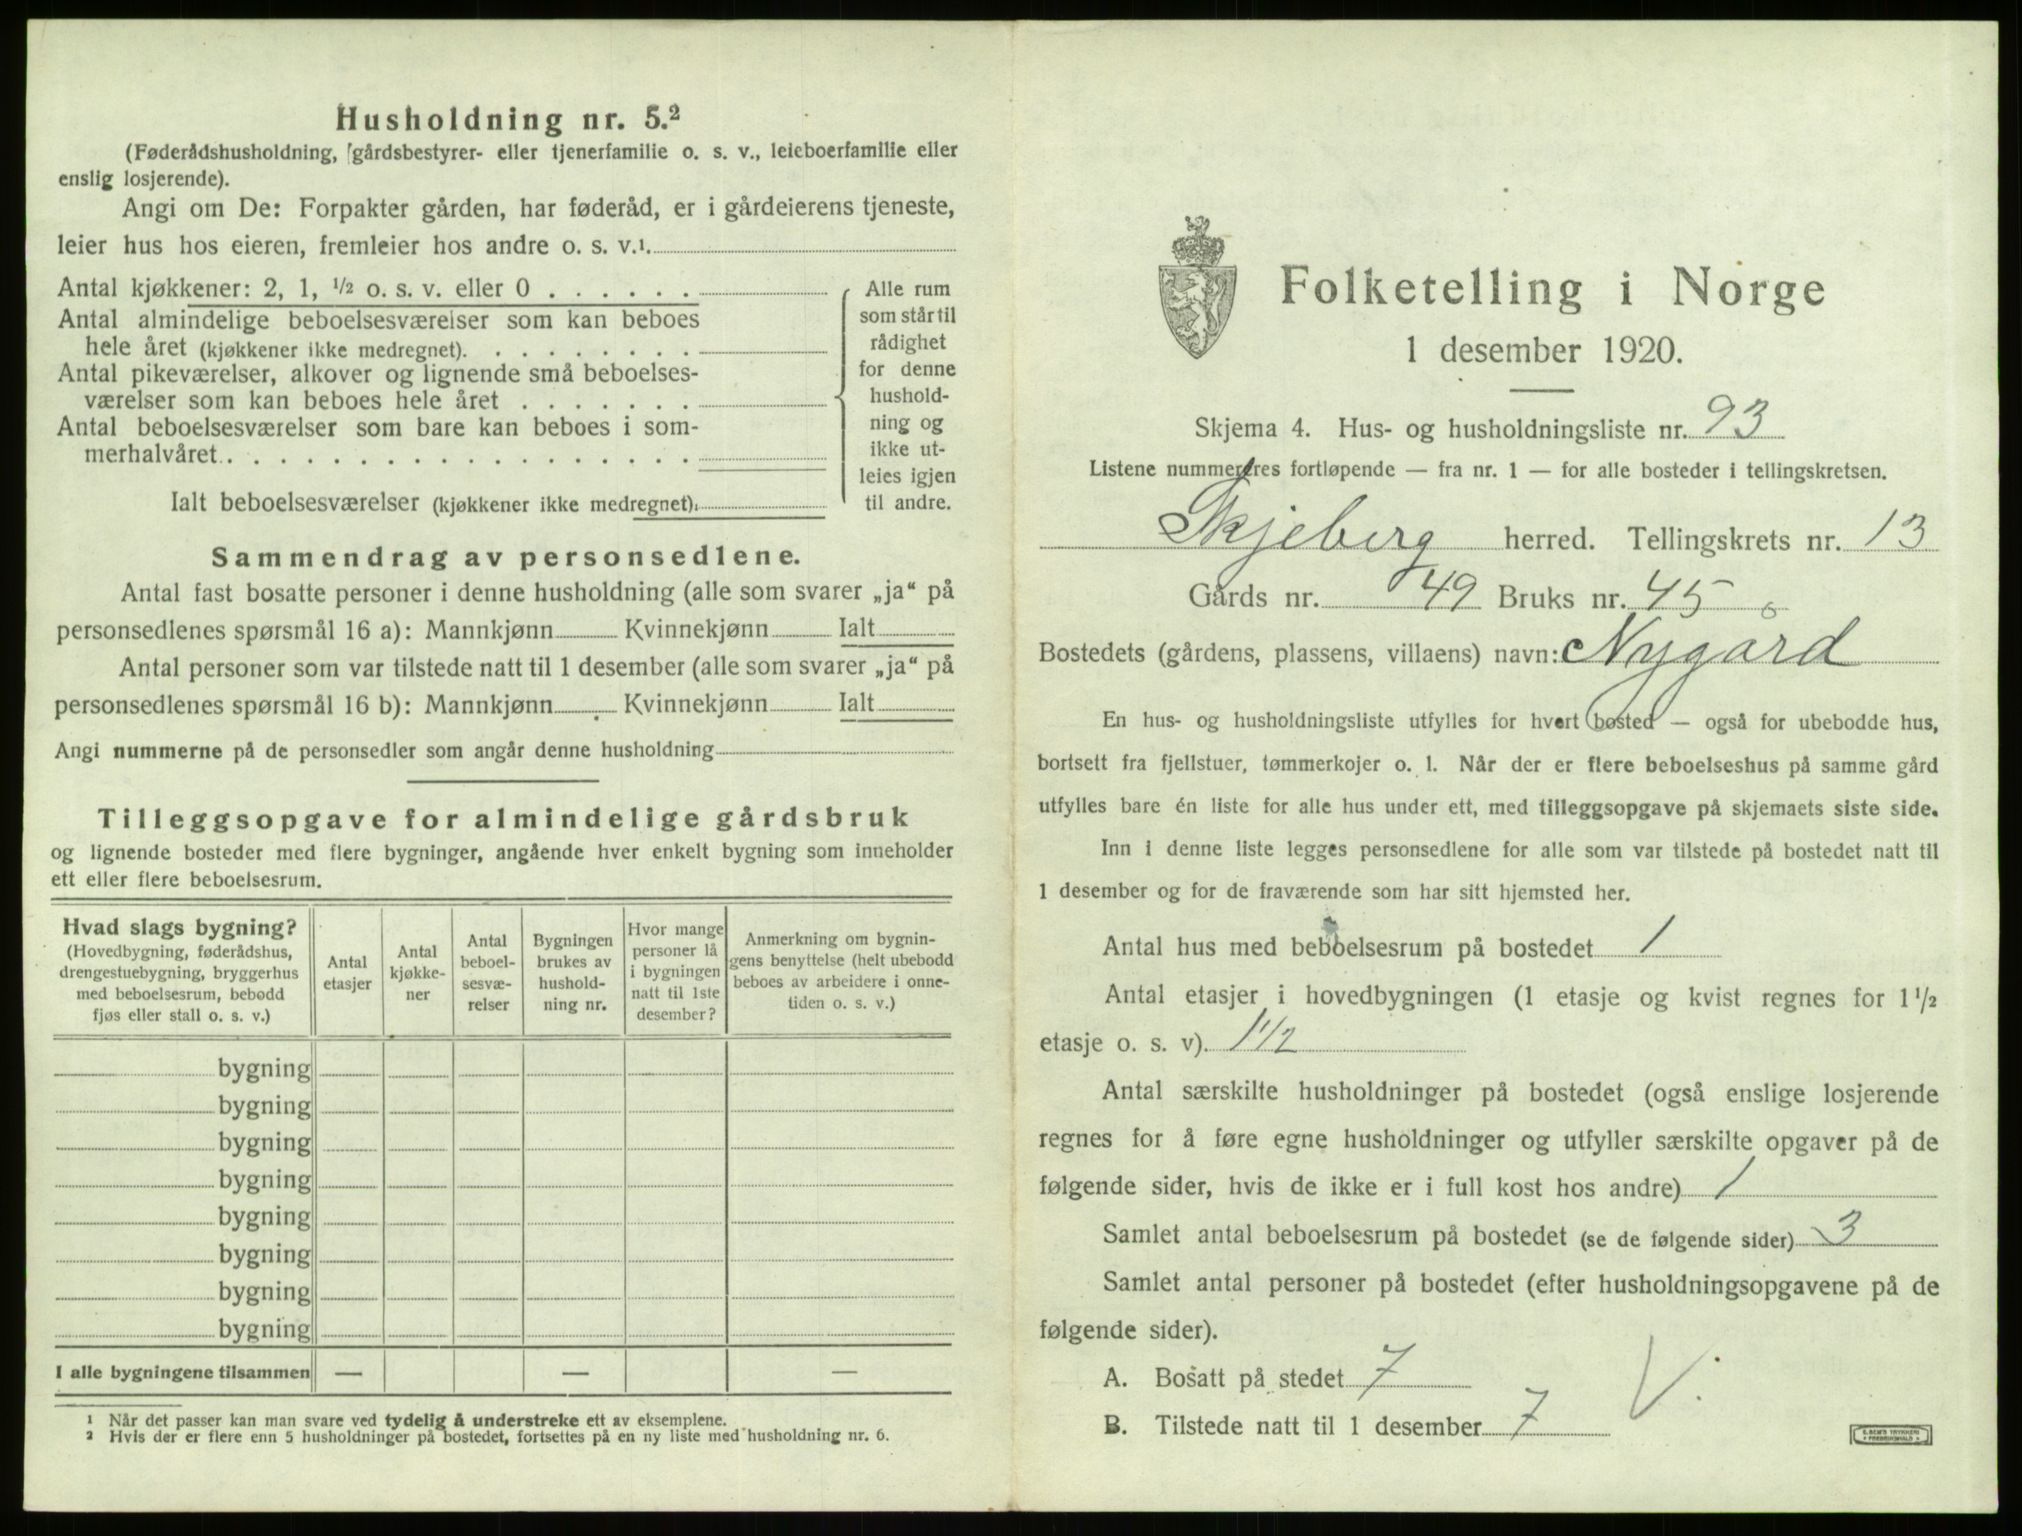 Husholdning nr. 5.²
(Føderådshusholdning, gårdsbestyrer- eller tjenerfamilie o. s. v., leieboerfamilie eller
enslig losjerende).
Angi om De: Forpakter gården, har føderåd, er i gårdeierens tjeneste,
leier hus hos eieren, fremleier hos andre o. s. v.¹
Antal kjøkkener: 2, 1, ½ o. s. v. eller 0 . . . . . .
Antal almindelige beboelsesværelser som kan beboes
hele året (kjøkkener ikke medregnet). . . . . . . . .
Antal pikeværelser, alkover og lignende små beboelses-
værelser som kan beboes hele året . . . . . . .
Antal beboelsesværelser som bare kan beboes i som-
merhalvåret. . . . . . . . . . . . . . . . . . .
Ialt beboelsesværelser (kjøkkener ikke medregnet).
Alle rum
som står til
rådighet
for denne
hushold-
ning og
ikke ut-
leies igjen
til andre.
Sammendrag av personsedlene.
Antal fast bosatte personer i denne husholdning (alle som svarer „ja“ på
personsedlenes spørsmål 16 a): Mannkjønn Kvinnekjønn Ialt
Antal personer som var tilstede natt til 1 desember (alle som svarer „ja“ på
personsedlenes spørsmål 16 b): Mannkjønn Kvinnekjønn Ialt
Angi nummerne på de personsedler som angår denne husholdning
Tilleggsopgave for almindelige gårdsbruk
og lignende bosteder med flere bygninger, angående hver enkelt bygning som inneholder
ett eller flere beboelsesrum.
Hvad slags bygning?
(Hovedbygning, føderådshus,
drengestuebygning, bryggerhus
med beboelsesrum, bebodd
fjøs eller stall o. s. v.)
Antal
etasjer
Antal
kjøkke-
ner
Antal
beboel-
sesvæ-
relser
Bygningen
brukes av
hushold-
ning nr.
Hvor mange
personer lå
i bygningen
natt til 1ste
desember?
Anmerkning om bygnin-
gens benyttelse (helt ubebodd
beboes av arbeidere i onne-
tiden o. s. v.)
bygning
bygning
bygning
bygning
bygning
bygning
bygning
bygning
I alle bygningene tilsammen — — —
¹ Når det passer kan man svare ved tydelig å understreke ett av eksemplene.
² Hvis der er flere enn 5 husholdninger på bostedet, fortsettes på en ny liste med husholdning nr. 6.
Folketelling i Norge
1 desember 1920.
Skjema 4. Hus- og husholdningsliste nr. 93
Listene nummereres fortløpende — fra nr. 1 — for alle bosteder i tellingskretsen.
Skjeberg herred. Tellingskrets nr. 13
Gårds nr. 49 Bruks nr. 45
Bostedets (gårdens, plassens, villaens) navn: Nygård
En hus- og husholdningsliste utfylles for hvert bosted — også for ubebodde hus,
bortsett fra fjellstuer, tømmerkojer o. l. Når der er flere beboelseshus på samme gård
utfylles bare én liste for alle hus under ett, med tilleggsopgave på skjemaets siste side.
Inn i denne liste legges personsedlene for alle som var tilstede på bostedet natt til
1 desember og for de fraværende som har sitt hjemsted her.
Antal hus med beboelsesrum på bostedet 1
Antal etasjer i hovedbygningen (1 etasje og kvist regnes for 1½
etasje o. s. v). 1½
Antal særskilte husholdninger på bostedet (også enslige losjerende
regnes for å føre egne husholdninger og utfyller særskilte opgaver på de
følgende sider, hvis de ikke er i full kost hos andre) 1
Samlet antal beboelsesrum på bostedet (se de følgende sider) 3
Samlet antal personer på bostedet (efter husholdningsopgavene på de
følgende sider).
A. Bosatt på stedet 7
B. Tilstede natt til 1 desember 7
V.